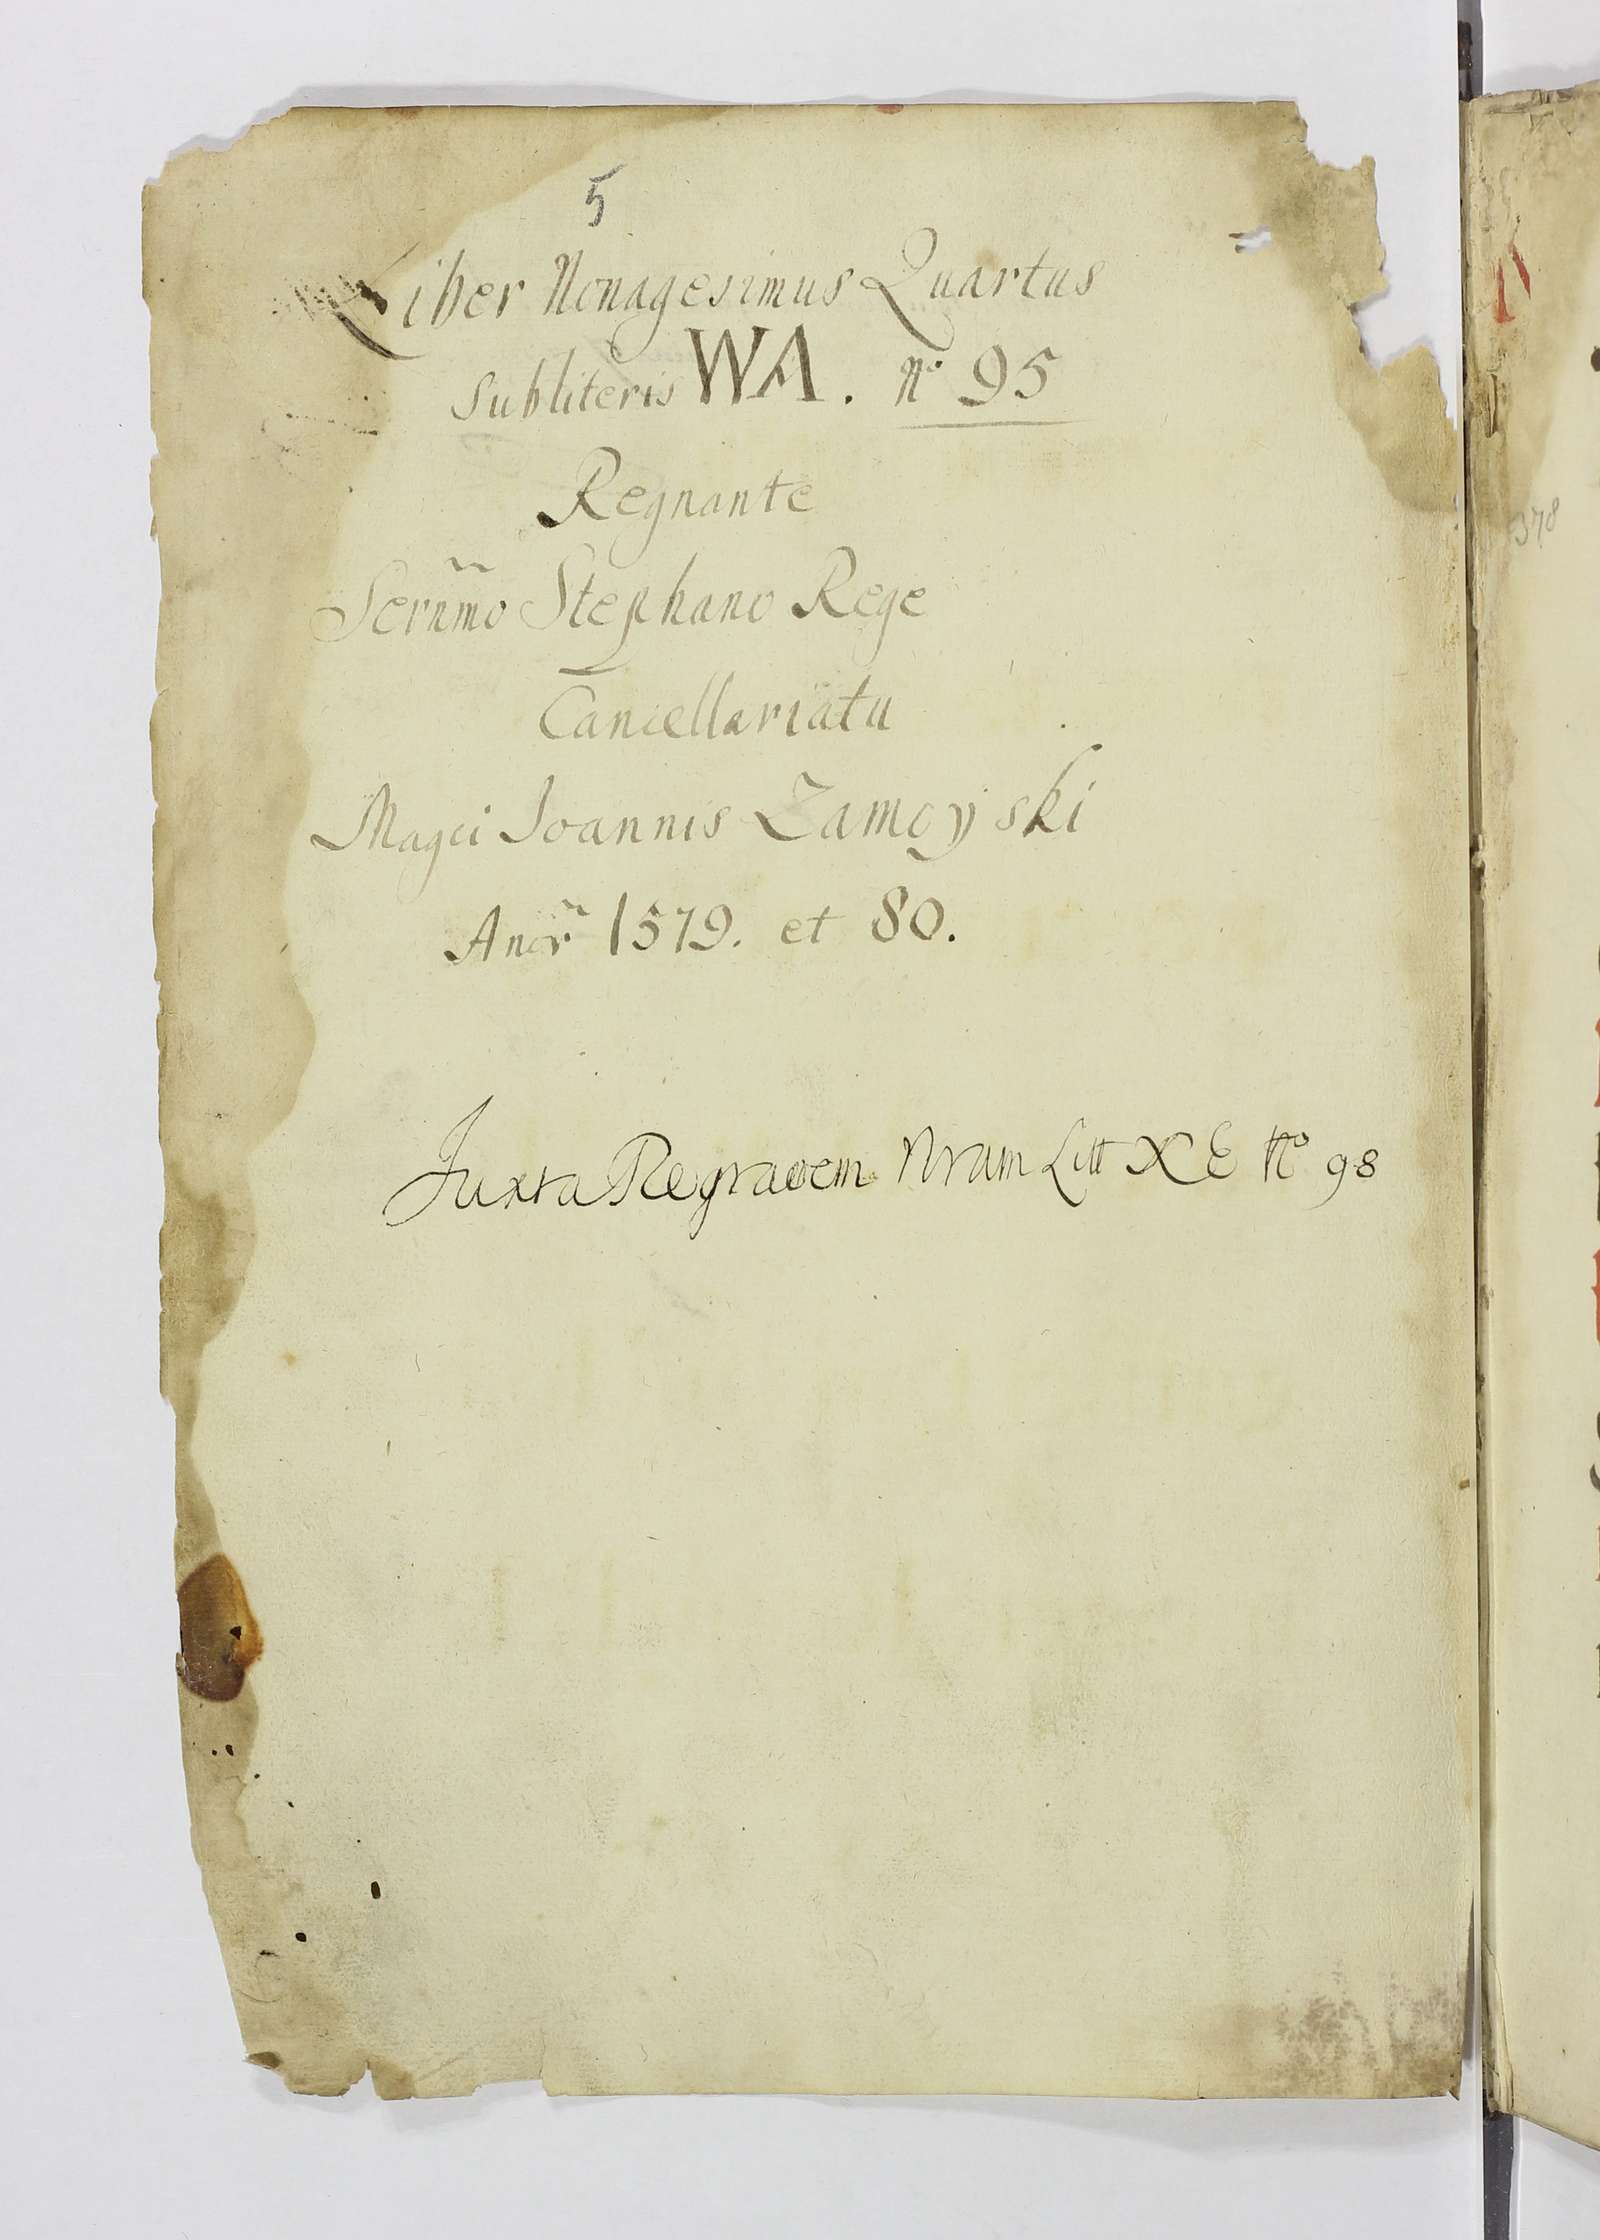 5
Liber Nonagesimus Quartus
subliteris WA. No 95
Regnante
Sernmo Stephano Rege
Cancellariatu
Magci Joannis Zamoyski
Anor 1579. et 80.
Juxta Regraoem Nram Litt XE No 98
378